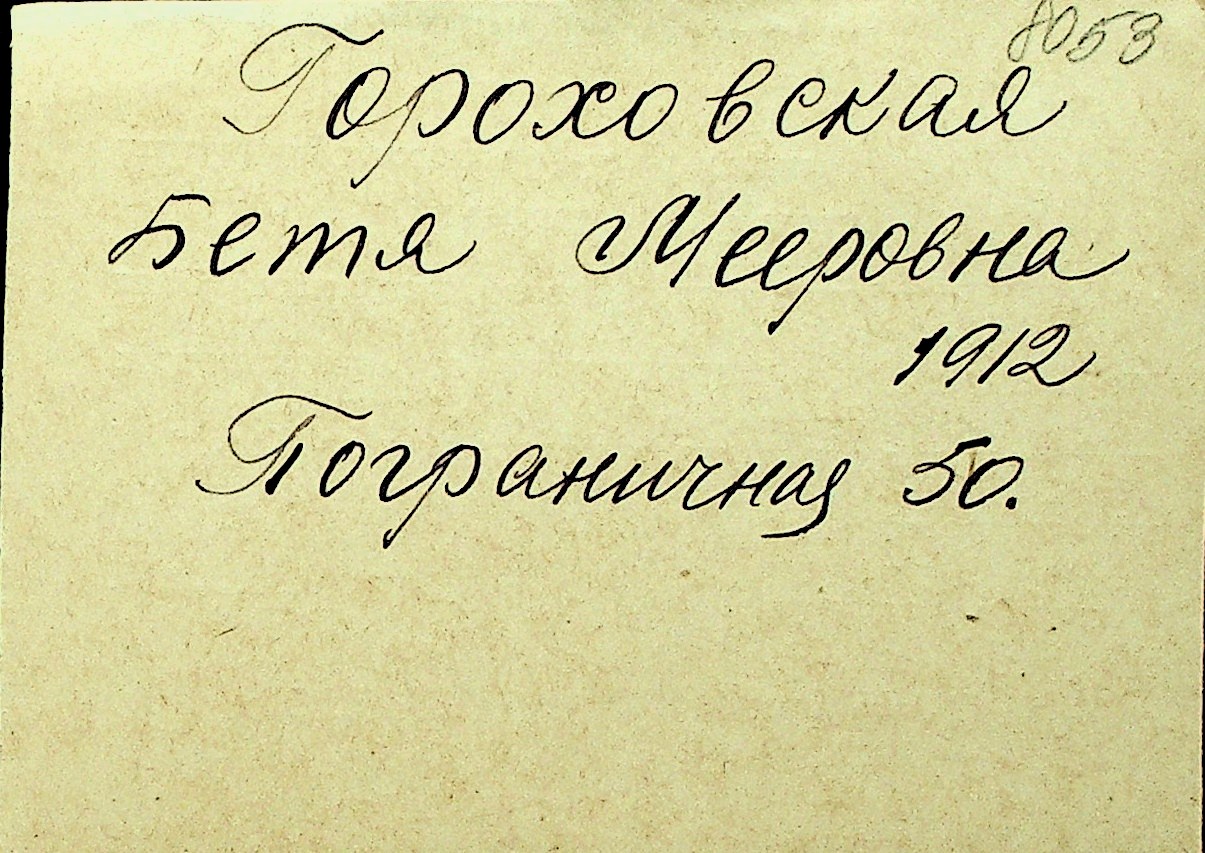 8053
Гороховская
Бетя Мееровна
1912
Пограничная 50.